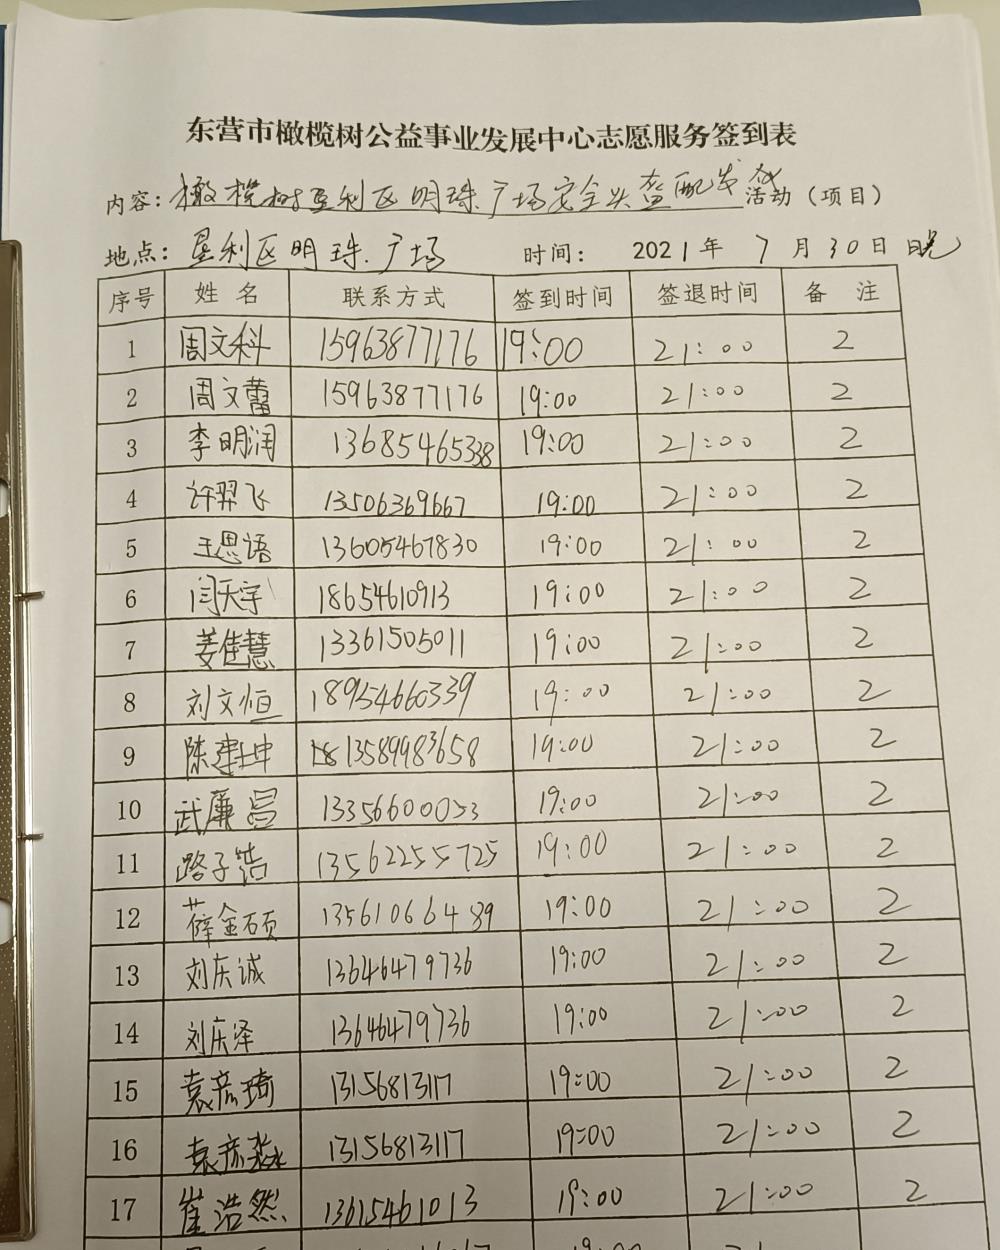 东营市橄榄树公益事业发展中心志愿服务签到表
内容：橄榄树垦利区明珠广场安全头盔配发 活动（项目）
地点：垦利区明珠广场 时间： 2021年 7月30日 晚
序号 姓名 联系方式 签到时间 签退时间 备注
1 周文科 15963877176 19:00 21:00 2
2 周文蕾 15963877176 19:00 21:00 2
3 李明润 13685465338 19:00 21:00 2
4 许羿飞 13506369667 19:00 21:00 2
5 王思语 13605467830 19:00 21:00 2
6 闫天宇 18654610913 19:00 21:00 2
7 姜佳慧 13361505011 19:00 21:00 2
8 刘文恒 18954660339 19:00 21:00 2
9 陈建坤 13589983658 19:00 21:00 2
10 武廉昌 13356600053 19:00 21:00 2
11 路子皓 13562255725 19:00 21:00 2
12 薛金硕 13561066489 19:00 21:00 2
13 刘庆诚 13646479736 19:00 21:00 2
14 刘庆泽 13646479736 19:00 21:00 2
15 袁彦琦 13156813117 19:00 21:00 2
16 袁彦淼 13156813117 19:00 21:00 2
17 崔浩然 13615461013 19:00 21:00 2